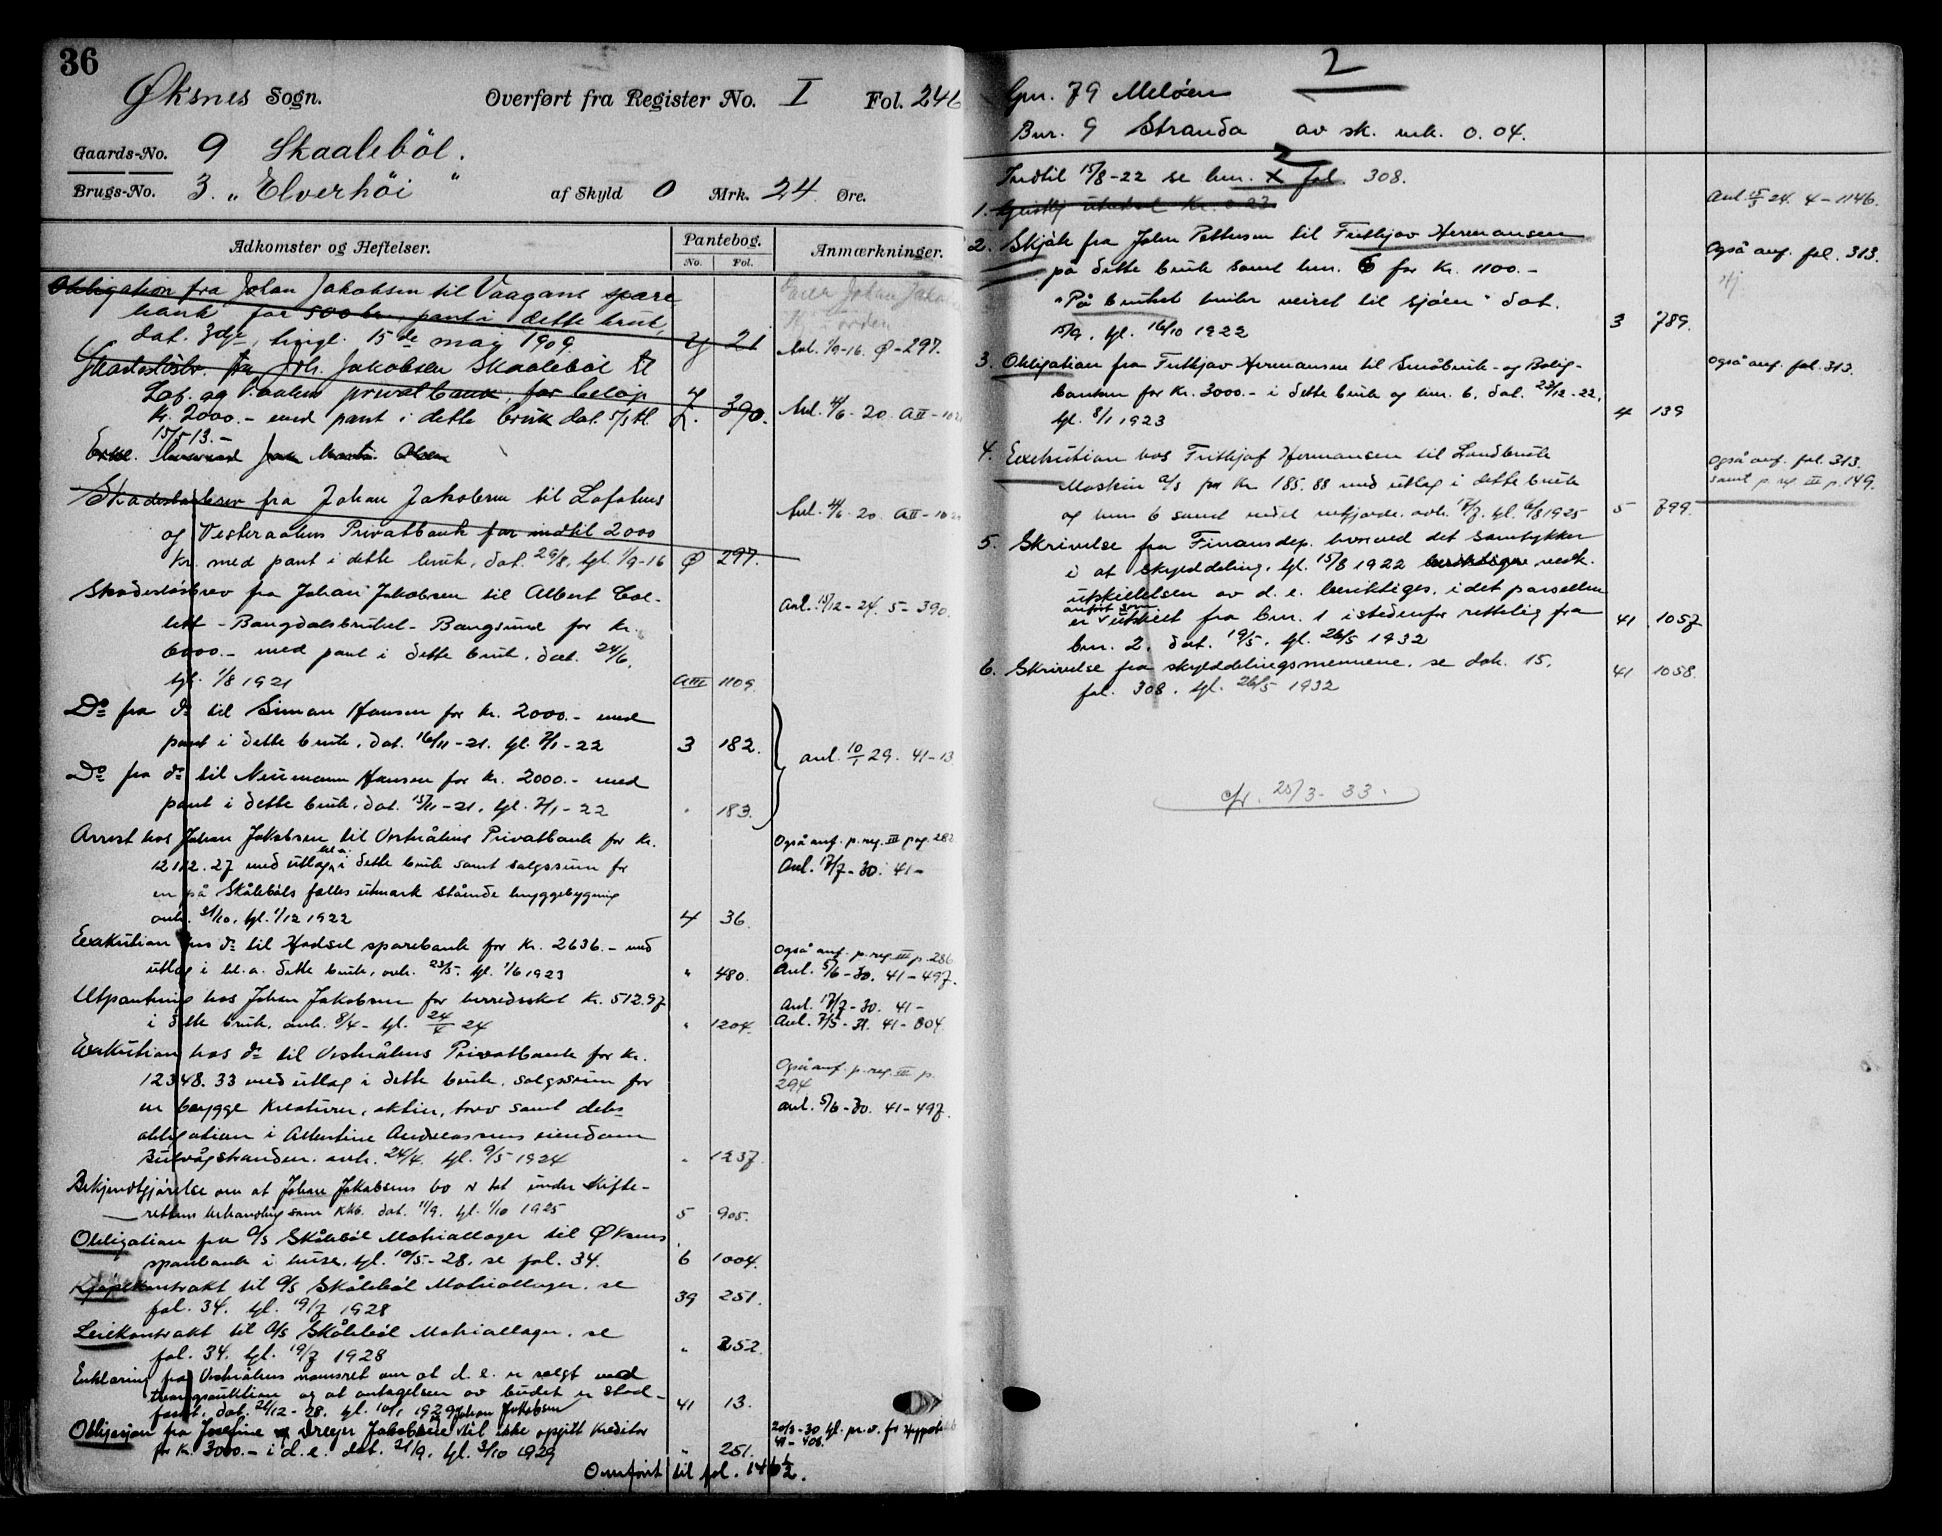 36
Øksnes Sogn. Overført fra Register No. I Fol. 246
Gaards-No. 9 Skaalebøl.
Brugs-No. 3. „ Elverhöi “ af Skyld 0 Mrk. 24 Øre.
Adkomster og Heftelser. Pantebog. No. Fol. Anmærkninger.
Obligation fra Johan Jakobsen til Vaagans spare
bank for 500 kr, pant i dette bruk,
dat. 3die, tingl. 15de mai 1909. y 21 Avl. 1/9-16. Ø-297.
Skadeslösbr. fra Joh. Jakobsen Skaalebøl til
Lof. og Vaalens privatbank, for beløp
Kr. 2000.- med pant i dette bruk dat. 5/5 tl. 390. Avl. 4/6-20. AII-
15/5 13.-
Skadeslösbrev fra Johan Jakobsen til Lofotens
og Vesteraalens Privatbank for indtil 2000 Avl. 4/6-20. AII-
Kr. med pant i dette bruk, dat. 29/8, tgl. 1/9-16 Ø 297.
Skadeslösbrev fra Johan Jakobsen til Albert Col-
lett - Bangdalsbruket - Bangsund for kr. Avl. 15/12-24. 5-390.
6000.- med pant i dette bruk, dat. 24/6,
tgl. 1/8 1921 AIII 1109.
Do fra do til Simon Hansen for kr. 2000.- med
pant i dette bruk, dat. 16/11-21. tgl. 2/1-22 3 182. avl. 10/1 29. 41-13
Do fra do til Neumann Hansen for kr. 2000.- med
pant i dette bruk, dat. 15/11-21, tgl. 2/1-22 " 183.
Arrest hos Johan Jakobsen til Vestrålens Privatbank for kr. Også anf. p. reg. III pag. 282
12112.27 med utlæg bl.a. i dette bruk samt salgssum for Avl. 17/7-30. 41-
en på Skålebøls fælles utmark stående bryggebygning
avh. 31/10, tgl. 1/12 1922 4 36.
Exekution hos do til Hadsel sparebank for kr. 2636.- med Også anf. p. reg. III p. 286
utlæg i bl.a. dette bruk, avh. 23/5. tgl. 1/6 1923 " 480. Avl. 5/6-30. 41-497.
Utpantning hos Johan Jakobsen for herredsskat kr. 512.97 Avl. 17/7-30. 41-
i dette bruk, avh. 8/4- tgl. 24/4 24 " 1204. Avl. 7/5-31. 41-804
Exekution hos do til Vestrålens Privatbank for kr.
12348.33 med utlæg i dette bruk, salgssum for Også anf. p. reg. III p. 294
en brygge kreaturer, aktier, torv samt dets avl. 5/6-30. 41-497.
obligation i Albertine Andreassens eiendom
avh. 24/4. tgl. 9/5 1924 " 1237.
Bekjendtgjørelse om at Johan Jakobsens bo er tat under skifte-
rettens behandling som kkb. dat. 11/9. tgl. 1/10 1925 5 905.
Obligation fra A/S Skålebøl Matriallager til Øksnes
sparebank i huse, tgl. 10/5-28, se fol. 34. 6 1004.
Kjøpekontrakt til A/S Skålebøl Matriallager, se
fol. 34. tgl. 19/7 1928 39 251.
Leiekontrakt til A/S Skålebøl Matriallager, se
fol. 34. tgl. 19/7 1928 " 252.
Erklæring fra Vestrålens namsret om at d.e. er solgt ved
tvangsauktion og at antagelsen av budet er stad-
fæstet, dat. 21/12-28. tgl. 10/1 1929 41 13.
Johan Jakobsen
Obligasjon fra Josefine og Dreyer Jakobsen til ikke opgitt kreditor
for kr. 3000.- i d.e. dat. 21/9. tgl. 3/10 1929 " 251.
Overført til fol. 146 1/2.
2
Gnr. 79 Meløen
Bnr. 9 Stranda av sk. mk. 0.04.
Indtil 15/8-22 se bnr. 2 fol. 308.
1. Geistlig utedel Kr. 0.23 Avl. 15/3 24. 4-1146.
2. Skjöte fra John Pettersen til Frithjov Hermansen Også anf. fol. 313.
på dette bruk samt bnr. 6 for kr. 1100.-
"På bruket hviler veiret til sjøen" dat.
15/9. tgl. 16/10 1922 3 789.
3. Obligation fra Frithjov Hermansen til Småbruk- og Bolig- også anf. fol. 313.
banken for kr. 3000.- i dette bruk og bnr. 6, dat. 23/12-22,
tgl. 8/1 1923 4 139
4. Exekution hos Frithjof Hermansen til Landbruks Også anf. fol. 313.
Maskin A/S for kr 185.88 med utlæg i dette bruk samt p. reg. III p. 149.
og bnr 6 samt avh. 17/7. tgl. 6/8 1925 5 799.
5. Skrivelse fra Finansdep. hvorved det samtykker
i at skylddeling, tgl. 15/8 1922 vedk.
utskillelsen av d.e. beriktiges, idet parsellen
anfört som
er utskilt fra bnr. 1 istedenfor rettelig fra
bnr. 2, dat. 19/5. tgl. 26/5 1932 41 1057
6. Skrivelse fra skylddelingsmennene, se dok. 15,
fol. 308. tgl. 26/5 1932 41 1058.
cfr. 25/3-33.